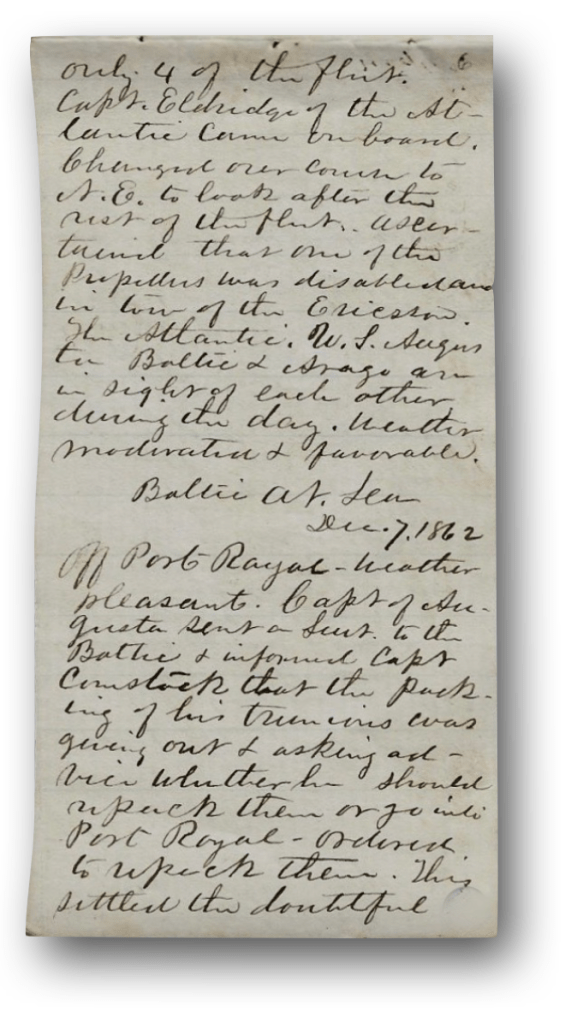 6
only 4 of the fleet.
Capt. Eldridge of the At-
lantic came on board.
Changed our course to
N.E. to look after the
rest of the fleet. Ascer-
tained that one of the
Propellers was disabled and
in tow of the Ericsson.
The Atlantic, U.S. Augus
ta Baltic & Arago are
in sight of each other
during the day. Weather
moderated & favorable.
Baltic At Sea
Dec. 7, 1862
Off Port Royal - Weather
pleasant. Capt of Au-
gusta sent a Lieut. to the
Baltic & informed Capt
Comstock that the pack-
ing of his trunions was
giving out & asking ad-
vice whether he should
repack them or go into
Port Royal - ordered
to repack them. This
settled the doubtful